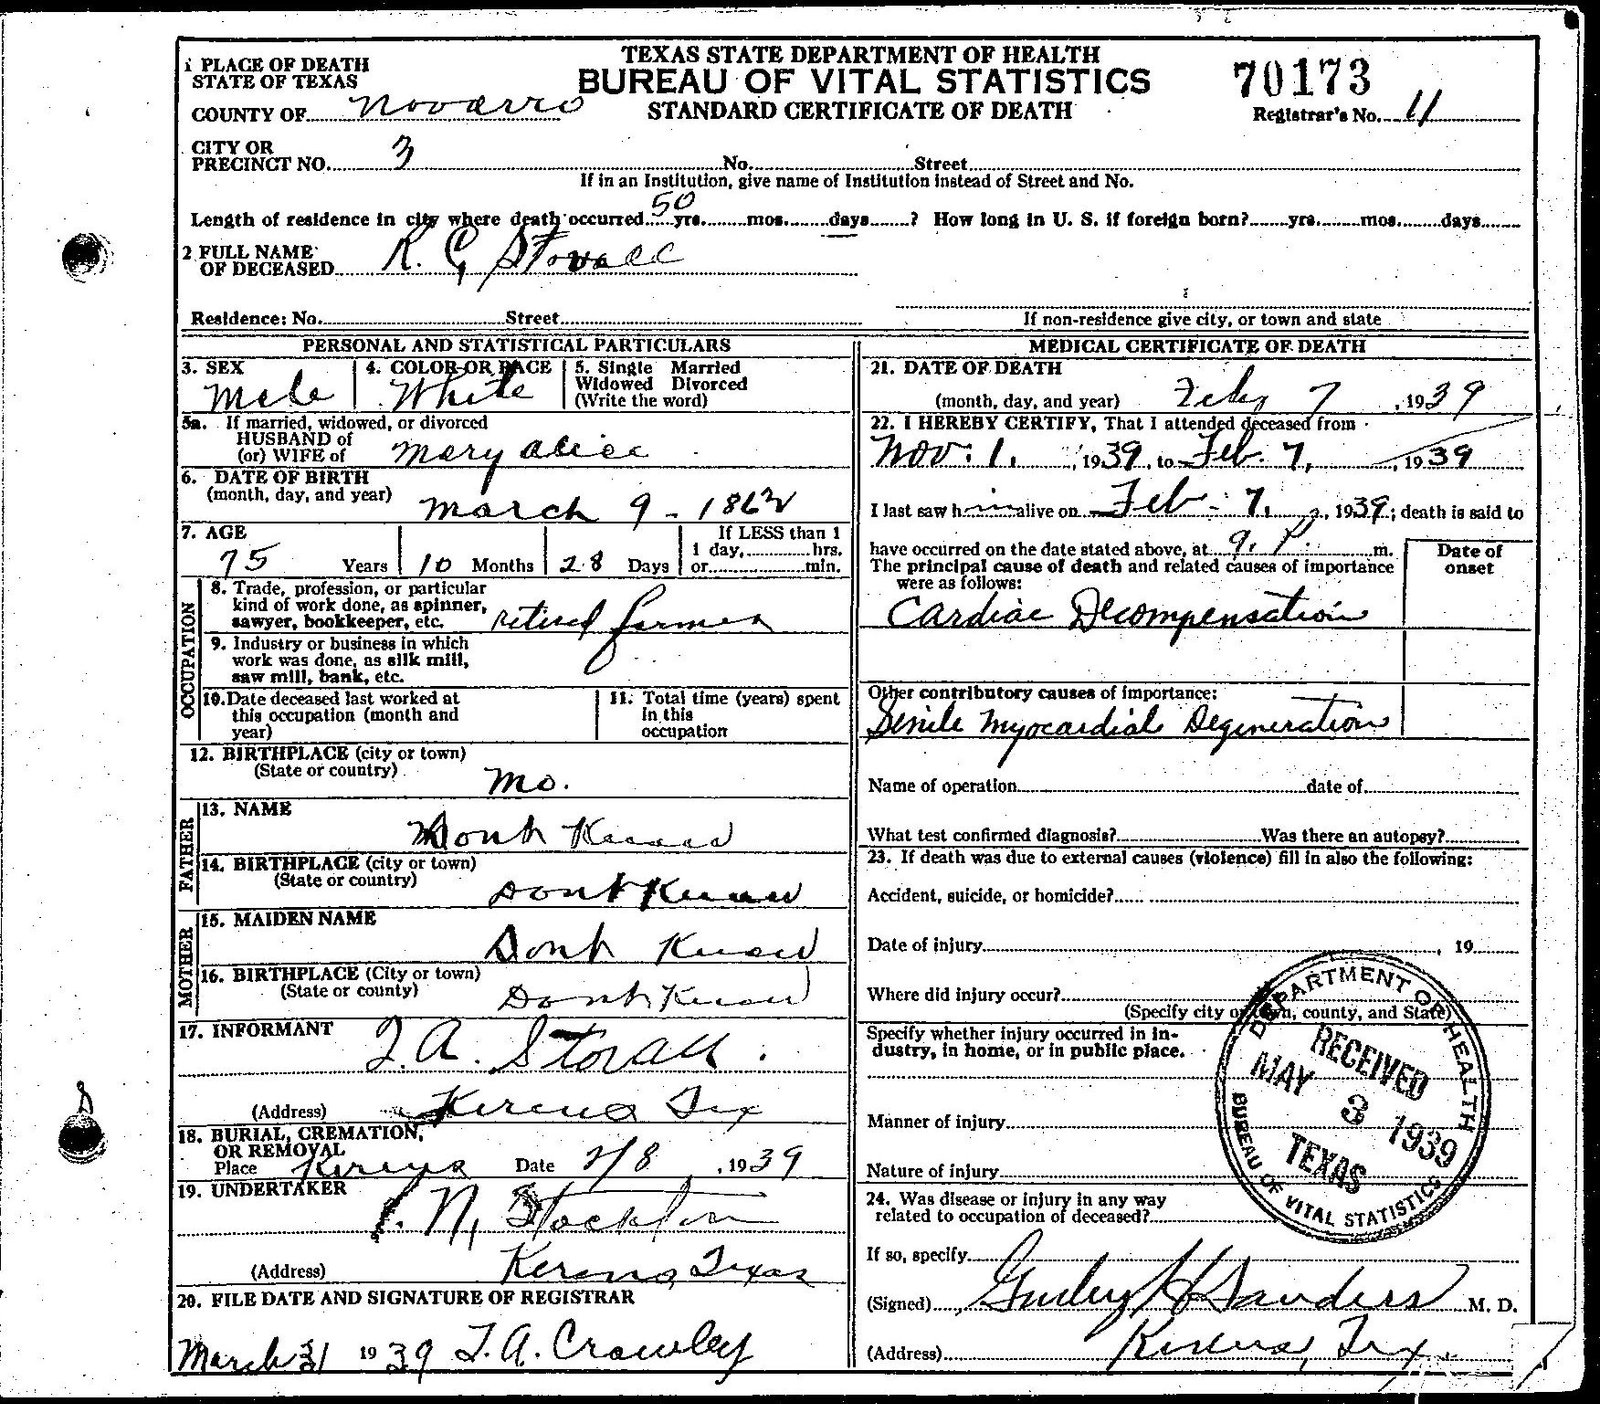 TEXAS STATE DEPARTMENT OF HEALTH
BUREAU OF VITAL STATISTICS
STANDARD CERTIFICATE OF DEATH
70173
Registrar's No. 11
1 PLACE OF DEATH
STATE OF TEXAS
COUNTY OF Novarro
CITY OR
PRECINCT NO. 3 No. Street
If in an Institution, give name of Institution instead of Street and No.
Length of residence in city where death occurred 50 yrs. mos. days ? How long in U. S. if foreign born? yrs. mos. days
2 FULL NAME
OF DECEASED R. C. Stovall
Residence: No. Street
If non-residence give city, or town and state
PERSONAL AND STATISTICAL PARTICULARS
3. SEX
Male
4. COLOR OR RACE
White
5. Single Married
Widowed Divorced
(Write the word)
5a. If married, widowed, or divorced
HUSBAND of
(or) WIFE of Mary Alice
6. DATE OF BIRTH
(month, day, and year) March 9 - 1862
7. AGE
75 Years 10 Months 28 Days
If LESS than 1
1 day, hrs.
or min.
OCCUPATION
8. Trade, profession, or particular
kind of work done, as spinner,
sawyer, bookkeeper, etc. retired farmer
9. Industry or business in which
work was done, as silk mill,
saw mill, bank, etc.
10. Date deceased last worked at
this occupation (month and
year)
11. Total time (years) spent
in this
occupation
12. BIRTHPLACE (city or town)
(State or country) Mo.
FATHER
13. NAME
Dont Know
14. BIRTHPLACE (city or town)
(State or country) Dont Know
MOTHER
15. MAIDEN NAME
Dont Know
16. BIRTHPLACE (City or town)
(State or county) Dont Know
17. INFORMANT J. A. Stovall.
(Address) Kerens Tex
18. BURIAL, CREMATION,
OR REMOVAL
Place Kerens Date 2/8, 1939
19. UNDERTAKER
N. Stockton
(Address) Kerens, Texas
20. FILE DATE AND SIGNATURE OF REGISTRAR
March 31 1939 T. A. Crowley
MEDICAL CERTIFICATE OF DEATH
21. DATE OF DEATH
(month, day, and year) Feby 7, 1939
22. I HEREBY CERTIFY, That I attended deceased from
Nov. 1, 1939, to Feb. 7, 1939
I last saw him alive on Feb. 7, 1939; death is said to
have occurred on the date stated above, at 9. P. m.
The principal cause of death and related causes of importance
were as follows:
Date of
onset
Cardiac Decompensation
Other contributory causes of importance:
Senile Myocardial Degeneration
Name of operation date of
What test confirmed diagnosis? Was there an autopsy?
23. If death was due to external causes (violence) fill in also the following:
Accident, suicide, or homicide?
Date of injury , 19
Where did injury occur?
(Specify city or town, county, and State)
Specify whether injury occurred in in-
dustry, in home, or in public place.
Manner of injury
Nature of injury
24. Was disease or injury in any way
related to occupation of deceased?
If so, specify
(Signed) Sanders M. D.
(Address) Kerens, Tex.
DEPARTMENT OF HEALTH
RECEIVED
MAY 3 1939
TEXAS
BUREAU OF VITAL STATISTICS